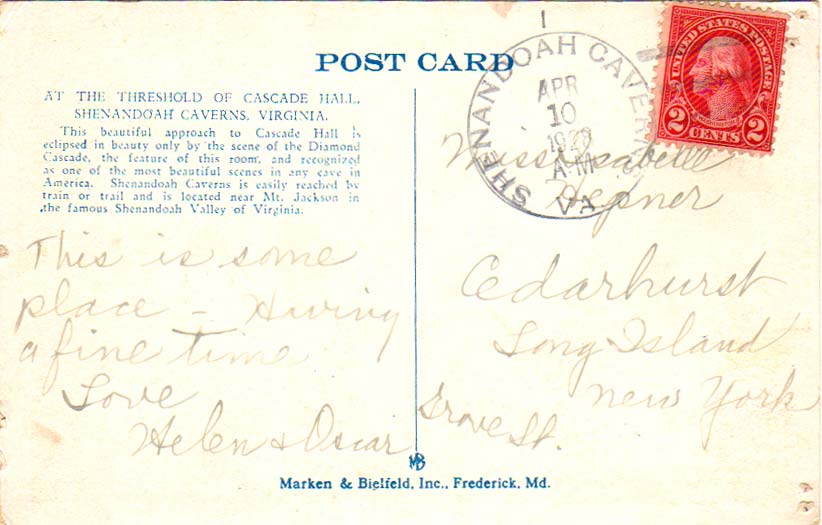 POST CARD
AT THE THRESHOLD OF CASCADE HALL,
SHENANDOAH CAVERNS, VIRGINIA.
This beautiful approach to Cascade Hall is
eclipsed in beauty only by the scene of the Diamond
Cascade, the feature of this room, and recognized
as one of the most beautiful scenes in any cave in
America. Shenandoah Caverns is easily reached by
train or trail and is located near Mt. Jackson in
the famous Shenandoah Valley of Virginia.
This is some
place - Having
a fine time
Love
Helen & Oscar
1
SHENANDOAH CAVERNS
APR
10
A-M
VA
UNITED STATES POSTAGE
2 CENTS 2
Miss Isabelle
Hepner
Cedarhurst
Long Island
New York
Grove St.
MB
Marken & Bielfeld, Inc., Frederick, Md.